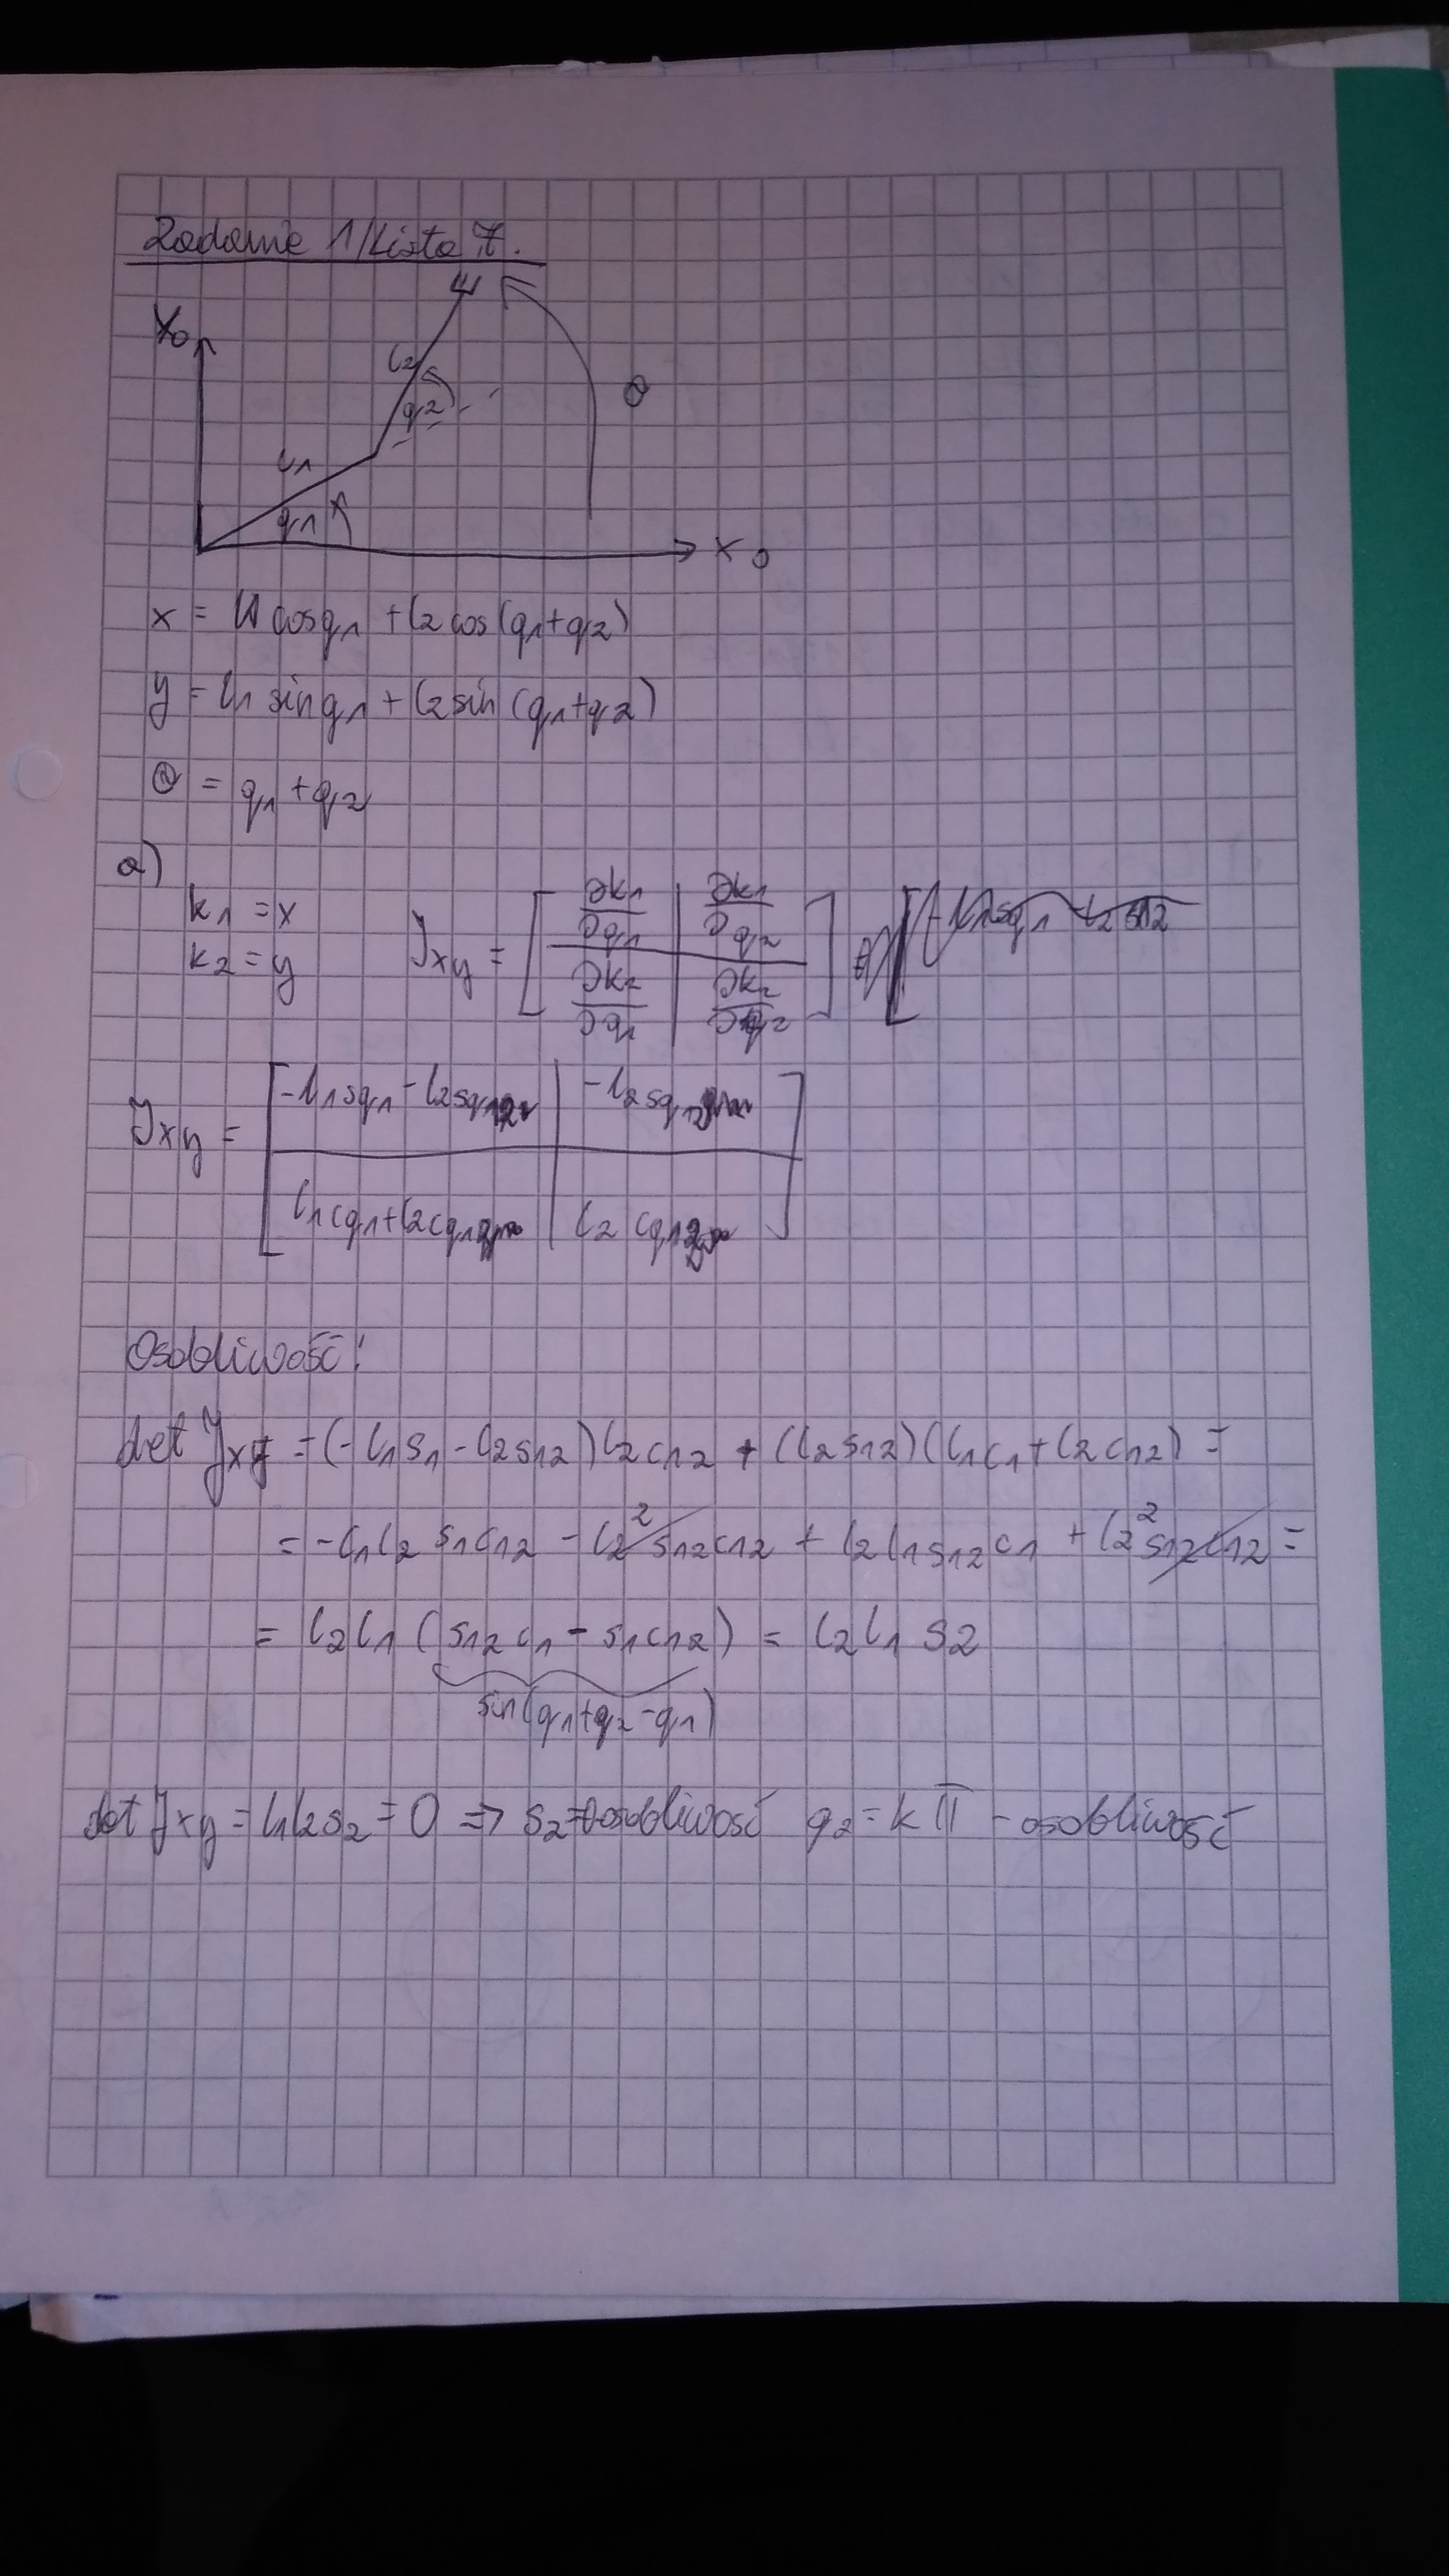 Zadanie 1/Lista 7.
Y0
l2
q2
θ
l1
q1
x0
x = l1 cosq1 + l2 cos(q1+q2)
y = l1 sinq1 + l2 sin(q1+q2)
θ = q1+q2
a)
k1 = x
k2 = y
Jxy = [ ∂k1/∂q1 | ∂k1/∂q2 ; ∂k2/∂q1 | ∂k2/∂q2 ]
Jxy = [ -l1sq1 - l2sq12 | -l2sq12 ; l1cq1+l2cq12 | l2cq12 ]
Osobliwość!
det Jxy = (-l1s1 - l2s12)l2c12 + (l2s12)(l1c1+l2c12) =
= -l1l2 s1c12 - l2²s12c12 + l2l1s12c1 + l2²s12c12 =
= l2l1 (s12c1 - s1c12) = l2l1 s2
sin(q1+q2-q1)
det Jxy = l1l2s2 = 0 => s2=0 osobliwość q2 = kΠ - osobliwość